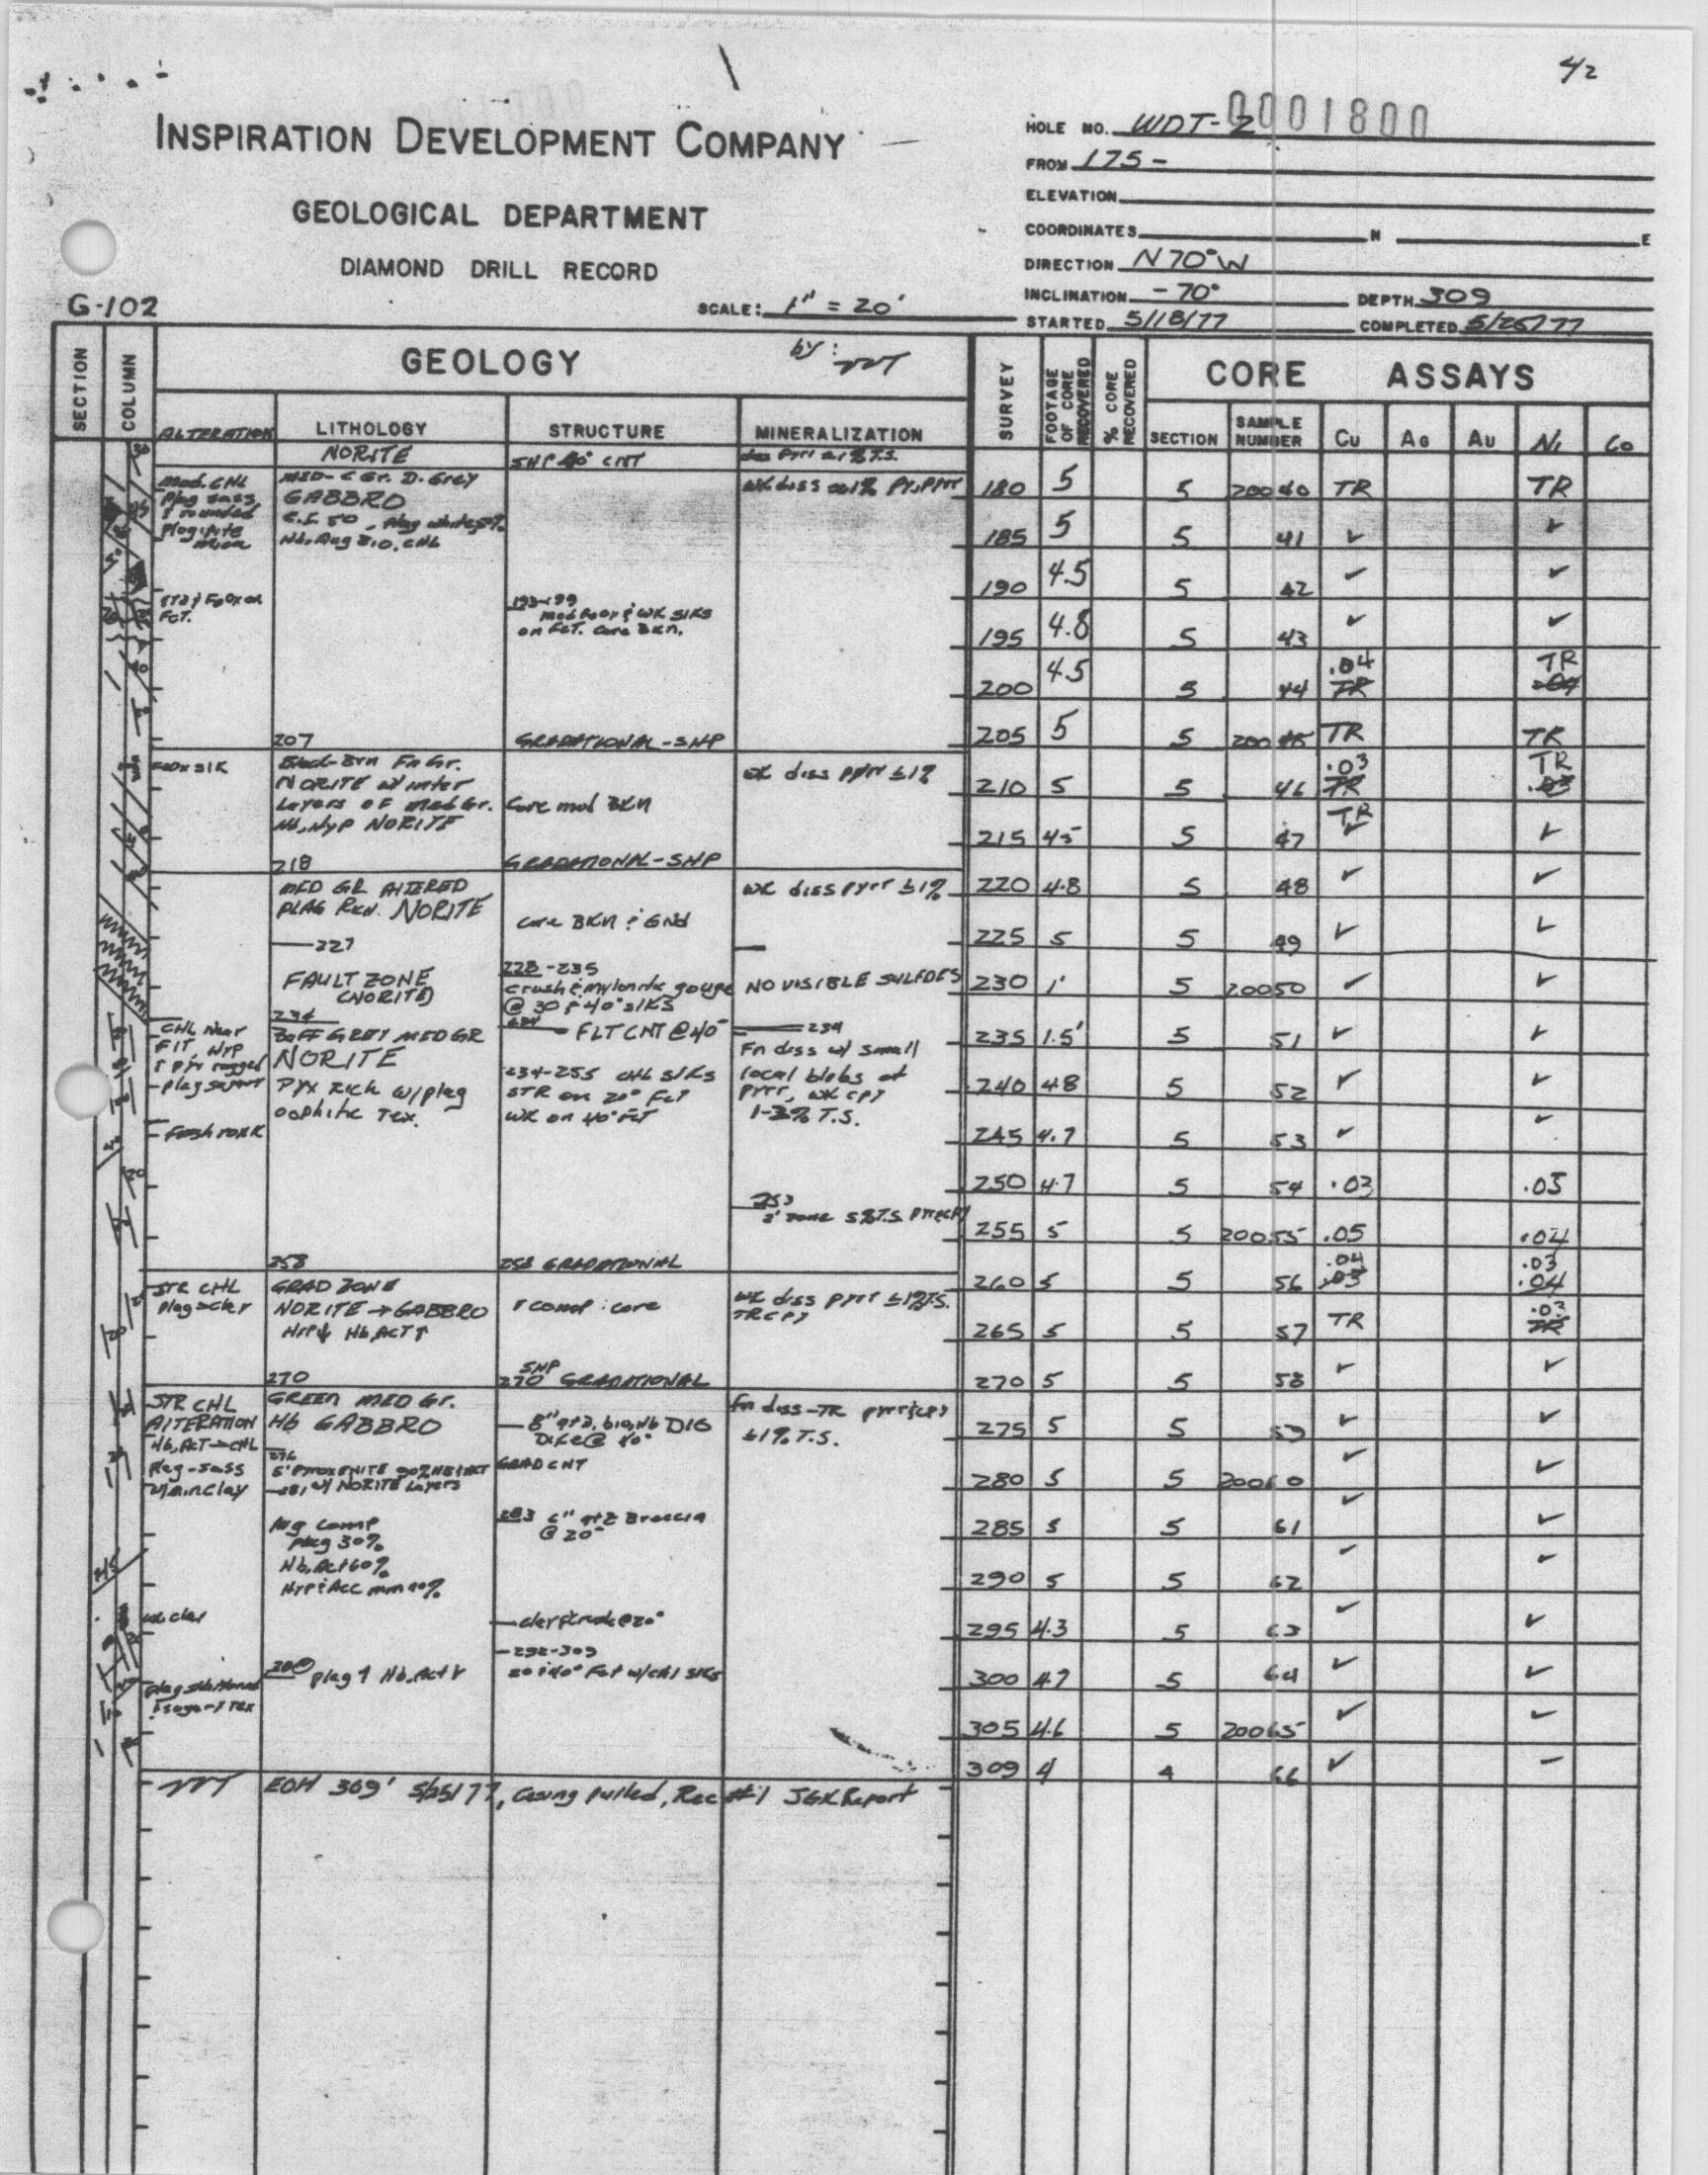 4/2
INSPIRATION DEVELOPMENT COMPANY
GEOLOGICAL DEPARTMENT
DIAMOND DRILL RECORD
G-102
SCALE: 1" = 20'
HOLE NO. WDT-2 0001800
FROM 175-
ELEVATION
COORDINATES N E
DIRECTION N70°W
INCLINATION -70° DEPTH 309
STARTED 5/18/77 COMPLETED 5/25/77
SECTION
COLUMN
GEOLOGY by:
SURVEY
FOOTAGE OF CORE RECOVERED
% CORE RECOVERED
CORE ASSAYS
ALTERATION LITHOLOGY STRUCTURE MINERALIZATION
SECTION SAMPLE NUMBER Cu AG AU Ni Co
NORITE
SHP 40° CNT
Mod. CHL
plag sass
& rounded
MED-C Gr. D. Grey
GABBRO
C.I. 50, plag white 50%
Hb, Aug BIO, CHL
wk diss 1% Py, pyrr
193-199
mod FeOx & wk slks
on Fct. Core Bkn.
207
GRADATIONAL-SHP
FeOx slk
Fn Gr.
NORITE w/ inter
layers of med Gr.
Hb, Hyp NORITE
Core mod BKN
wk diss pyrr ≤1%
218
GRADATIONAL-SHP
MED GR ALTERED
PLAG Rich. NORITE
core BKN & GNd
wk diss pyrr ≤1%
227
FAULT ZONE
(NORITE)
228-235
crush & mylonitic gouge
@ 30 & 40° slks
NO VISIBLE SULFIDES
234
CHL near
FLT, HYP
& pyx ragged
plag sugary
- fresh rock
BUFF GREY MED GR
NORITE
Pyx Rich w/plag
oophitic Tex.
234
FLT CNT @ 40°
234-255 CHL slks
STR on 20° FcT
WK on 40° FcT
234
Fn diss w/ small
local blebs of
pyrr, wk cpy
1-3% T.S.
253
2' zone 5% T.S. pyrr cpy
258
258 GRADATIONAL
STR CHL
GRAD ZONE
NORITE → GABBRO
HYP↓ Hb, ACT↑
core
wk diss pyrr ≤1% T.S.
TR CPY
270
SHP
270 GRADATIONAL
STR CHL
ALTERATION
Hb, ACT → CHL
plag-sass
minclay
GREEN MED Gr.
Hb GABBRO
8" qtz, bio, Hb DIG
Dike @ 40°
Fn diss-TR pyrr & cpy
≤1% T.S.
276
5' PYROXENITE 90% HB & ACT
281, w/ NORITE Layers
GRAD CNT
283 6" qtz Breccia
@ 20°
Avg Comp
plag 30%
Hb, Act 60%
Hyp & Acc min 10%
wk clay
292-309
20 & 40° Fct w/chl slks
plag↑ Hb, Act↓
180 5 5 20040 TR TR
185 5 5 41 ✓ ✓
190 4.5 5 42 ✓ ✓
195 4.8 5 43 ✓ ✓
200 4.5 5 44 .04 TR TR .04
205 5 5 20045 TR TR
210 5 5 46 .03 TR TR .03
215 45 5 47 TR ✓ ✓
220 4.8 5 48 ✓ ✓
225 5 5 49 ✓ ✓
230 1' 5 20050 ✓ ✓
235 1.5' 5 51 ✓ ✓
240 48 5 52 ✓ ✓
245 4.7 5 53 ✓ ✓
250 4.7 5 54 .03 .05
255 5 5 20055 .05 .04
260 5 5 56 .04 .03 .03 .04
265 5 5 57 TR .03 TR
270 5 5 58 ✓ ✓
275 5 5 59 ✓ ✓
280 5 5 20060 ✓ ✓
285 5 5 61 ✓ ✓
290 5 5 62 ✓ ✓
295 4.3 5 63 ✓ ✓
300 4.7 5 64 ✓ ✓
305 4.6 5 20065 ✓ ✓
309 4 4 66 ✓ -
EOH 309' 5/25/77, Casing pulled, Rec #1 JGK Report